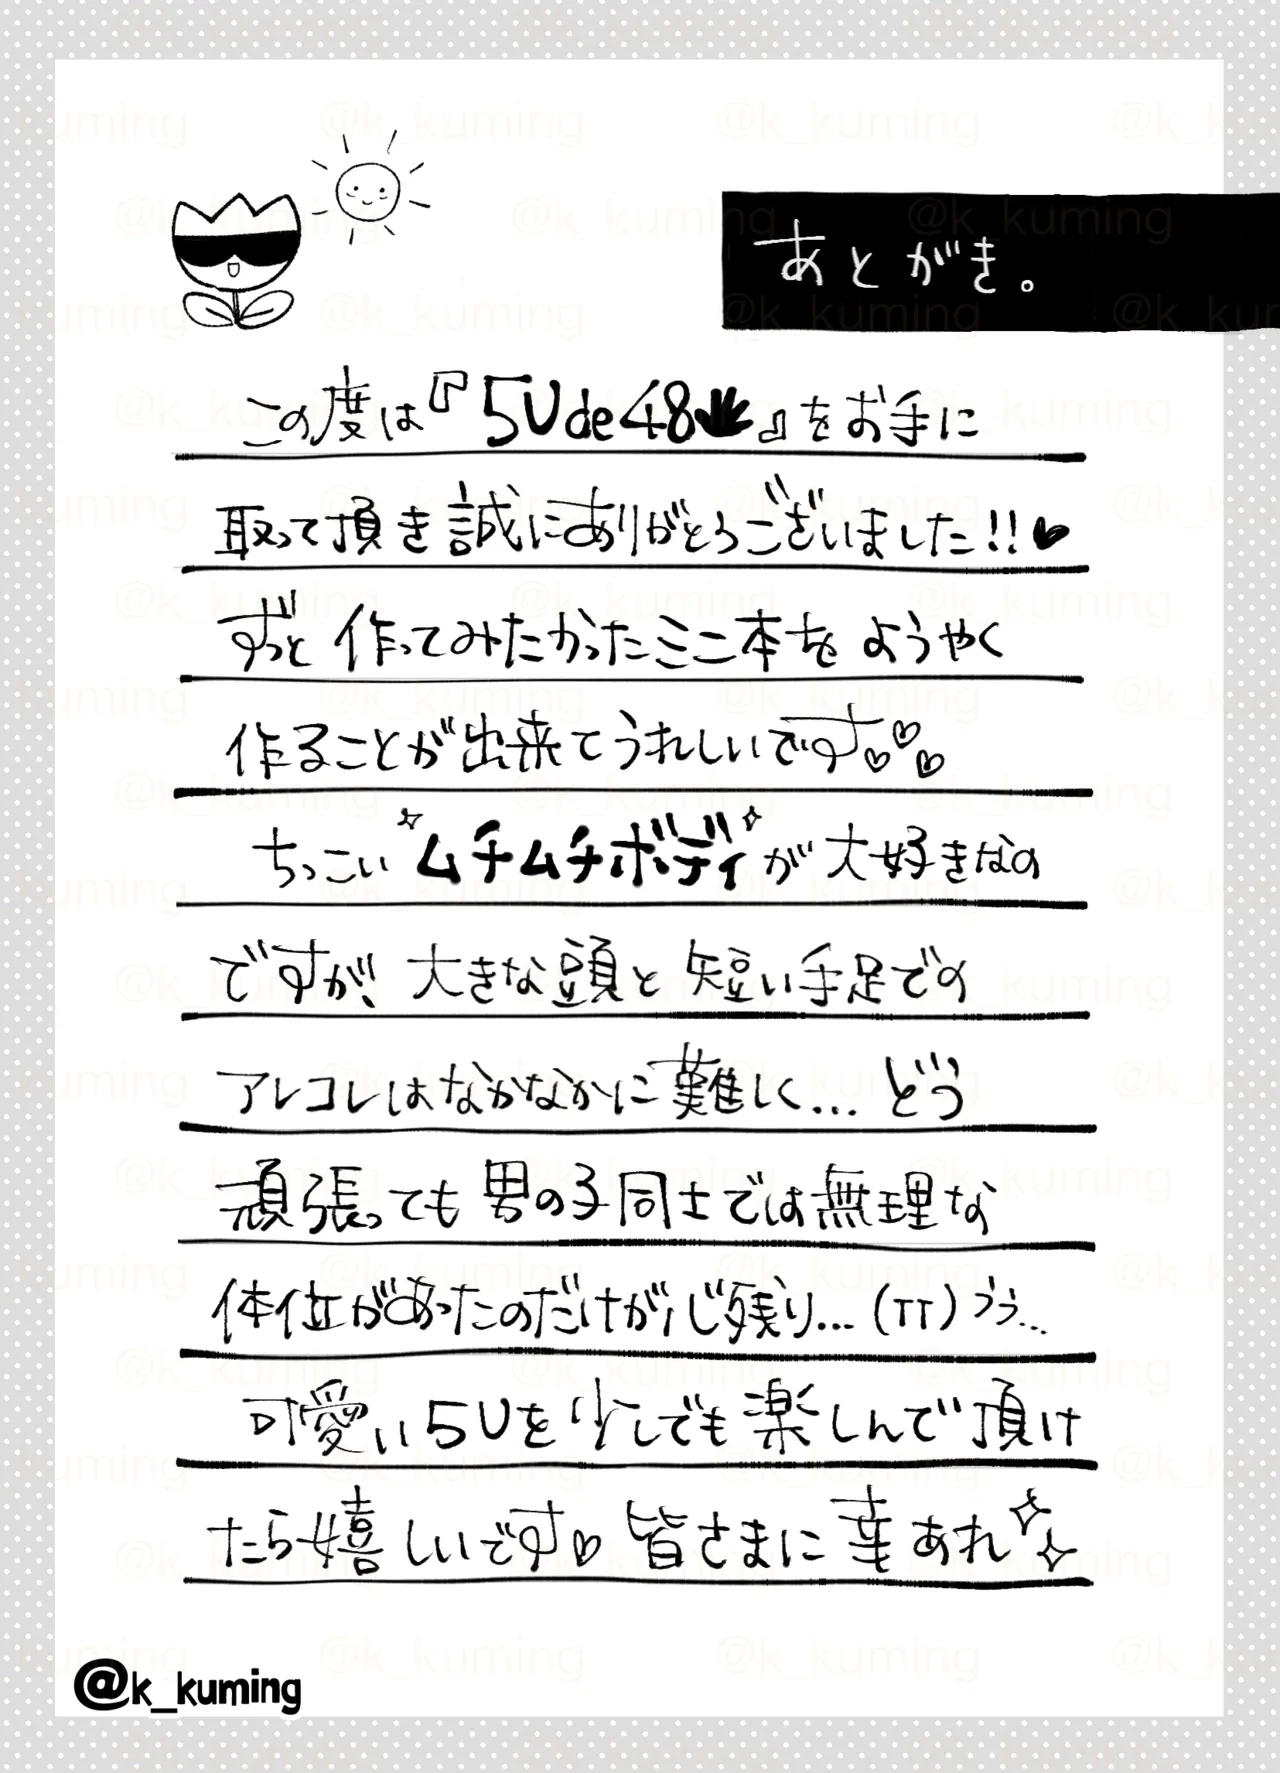 あとがき。
この度は『5Ude48』をお手に
取って頂き誠にありがとうございました!!♥
ずっと作ってみたかったミニ本をようやく
作ることが出来てうれしいです♡♡♡
ちっこいムチムチボディが大好きなの
ですが、大きな頭と短い手足での
アレコレはなかなかに難しく...どう
頑張っても男の子同士では無理な
体位があったのだけが心残り...(TT)うぅ...
可愛い5Uを少しでも楽しんで頂け
たら嬉しいです♡皆さまに幸あれ
@k_kuming